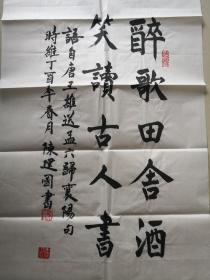 醉歌田舍酒
笑讀古人書
語自唐王維送孟六歸襄陽句
時維丁酉年春月陳建國書